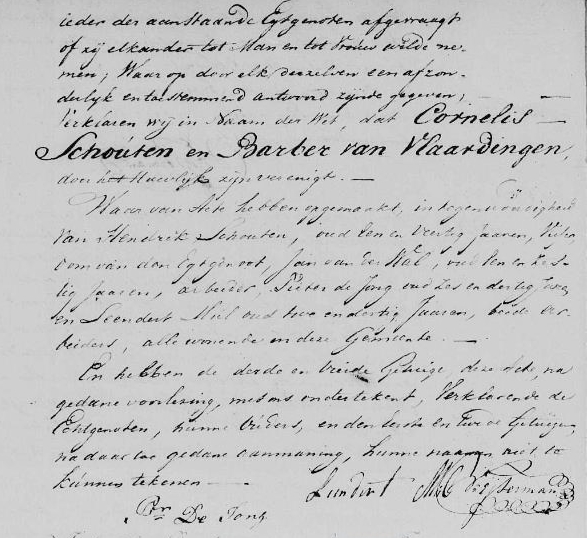 ieder der aanstaande Egtgenoten afgevraagt
of zij elkander tot Man en tot Vrouw wilde ne-
men; Waar op door elk derzelven een afzon-
derlyk en toestemmend antwoord zijnde gegeven,
Verklaren wij in Naam der Wet, dat Cornelis
Schouten en Barber van Vlaardingen,
door het Huwelijk zijn verenigt. —
Waar van Acte hebben opgemaakt, in tegenwoordigheid
van Hendrik Schouten, oud en veertig Jaaren,
oom van den Egtgenoot, Jan van der oud een en
tig Jaaren, arbeider, Pieter de Jong oud zes en dertig Jaren
en Leendert Mul oud twee en dertig Jaaren, beide ar-
beiders, alle wonende in deze Gemeente. —
En hebben de derde en vierde Getuige, deze Acte, na
gedane voorlezing, met ons ondertekent, Verklarende de
Echtgenoten, hunne Vaders, en den eerste en twede Getuigen,
na daar toe gedane aanmaning, hunne naamen niet te
kunnen tekenen —
Lendert Mul
Pr De Jong